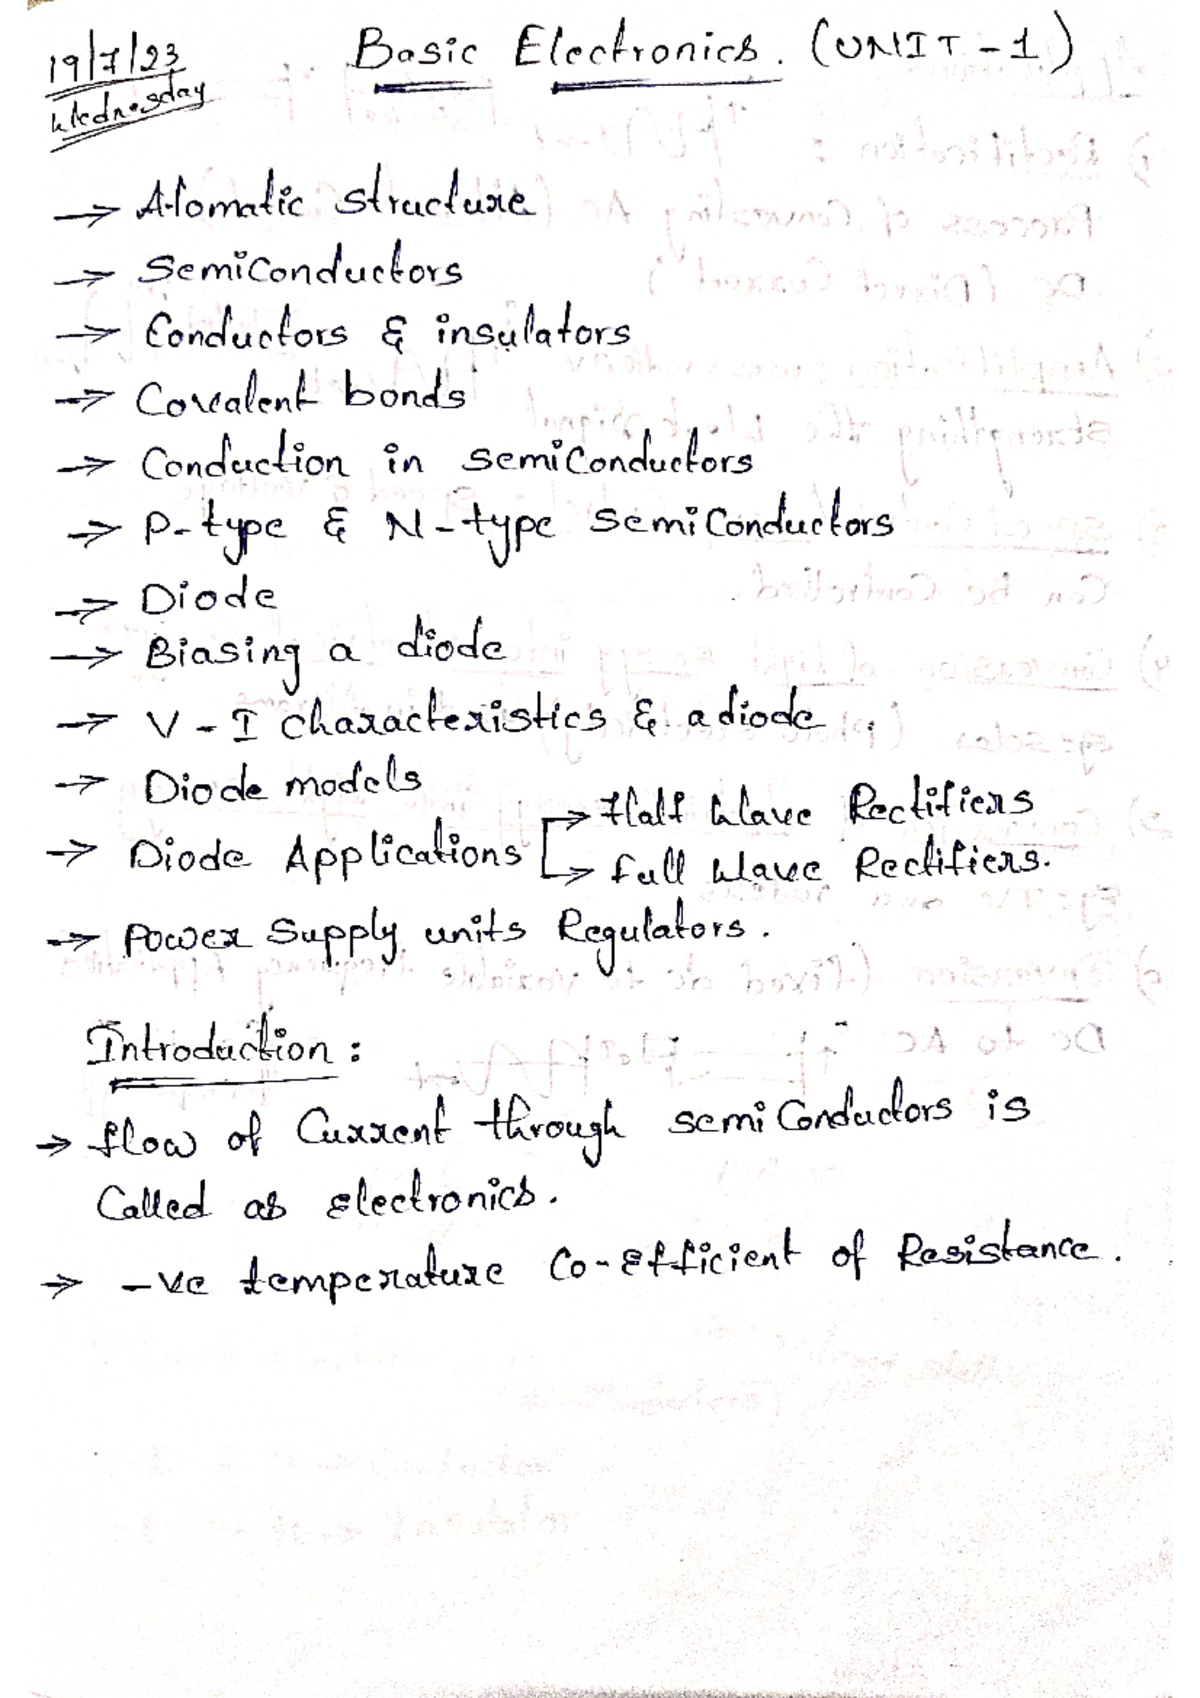 19/7/23
Wednesday
Basic Electronics. (UNIT-1)
→ Atomatic structure
→ Semiconductors
→ Conductors & insulators
→ Covalent bonds
→ Conduction in semiConductors
→ P-type & N-type semiConductors
→ Diode
→ Biasing a diode
→ V-I characteristics & a diode.
→ Diode models
→ Diode Applications → Half Wave Rectifiers
→ full Wave Rectifiers.
→ Power Supply units Regulators.
Introduction:
→ flow of Current through semiConductors is
Called as electronics.
→ -ve temperature Co-Efficient of Resistance.